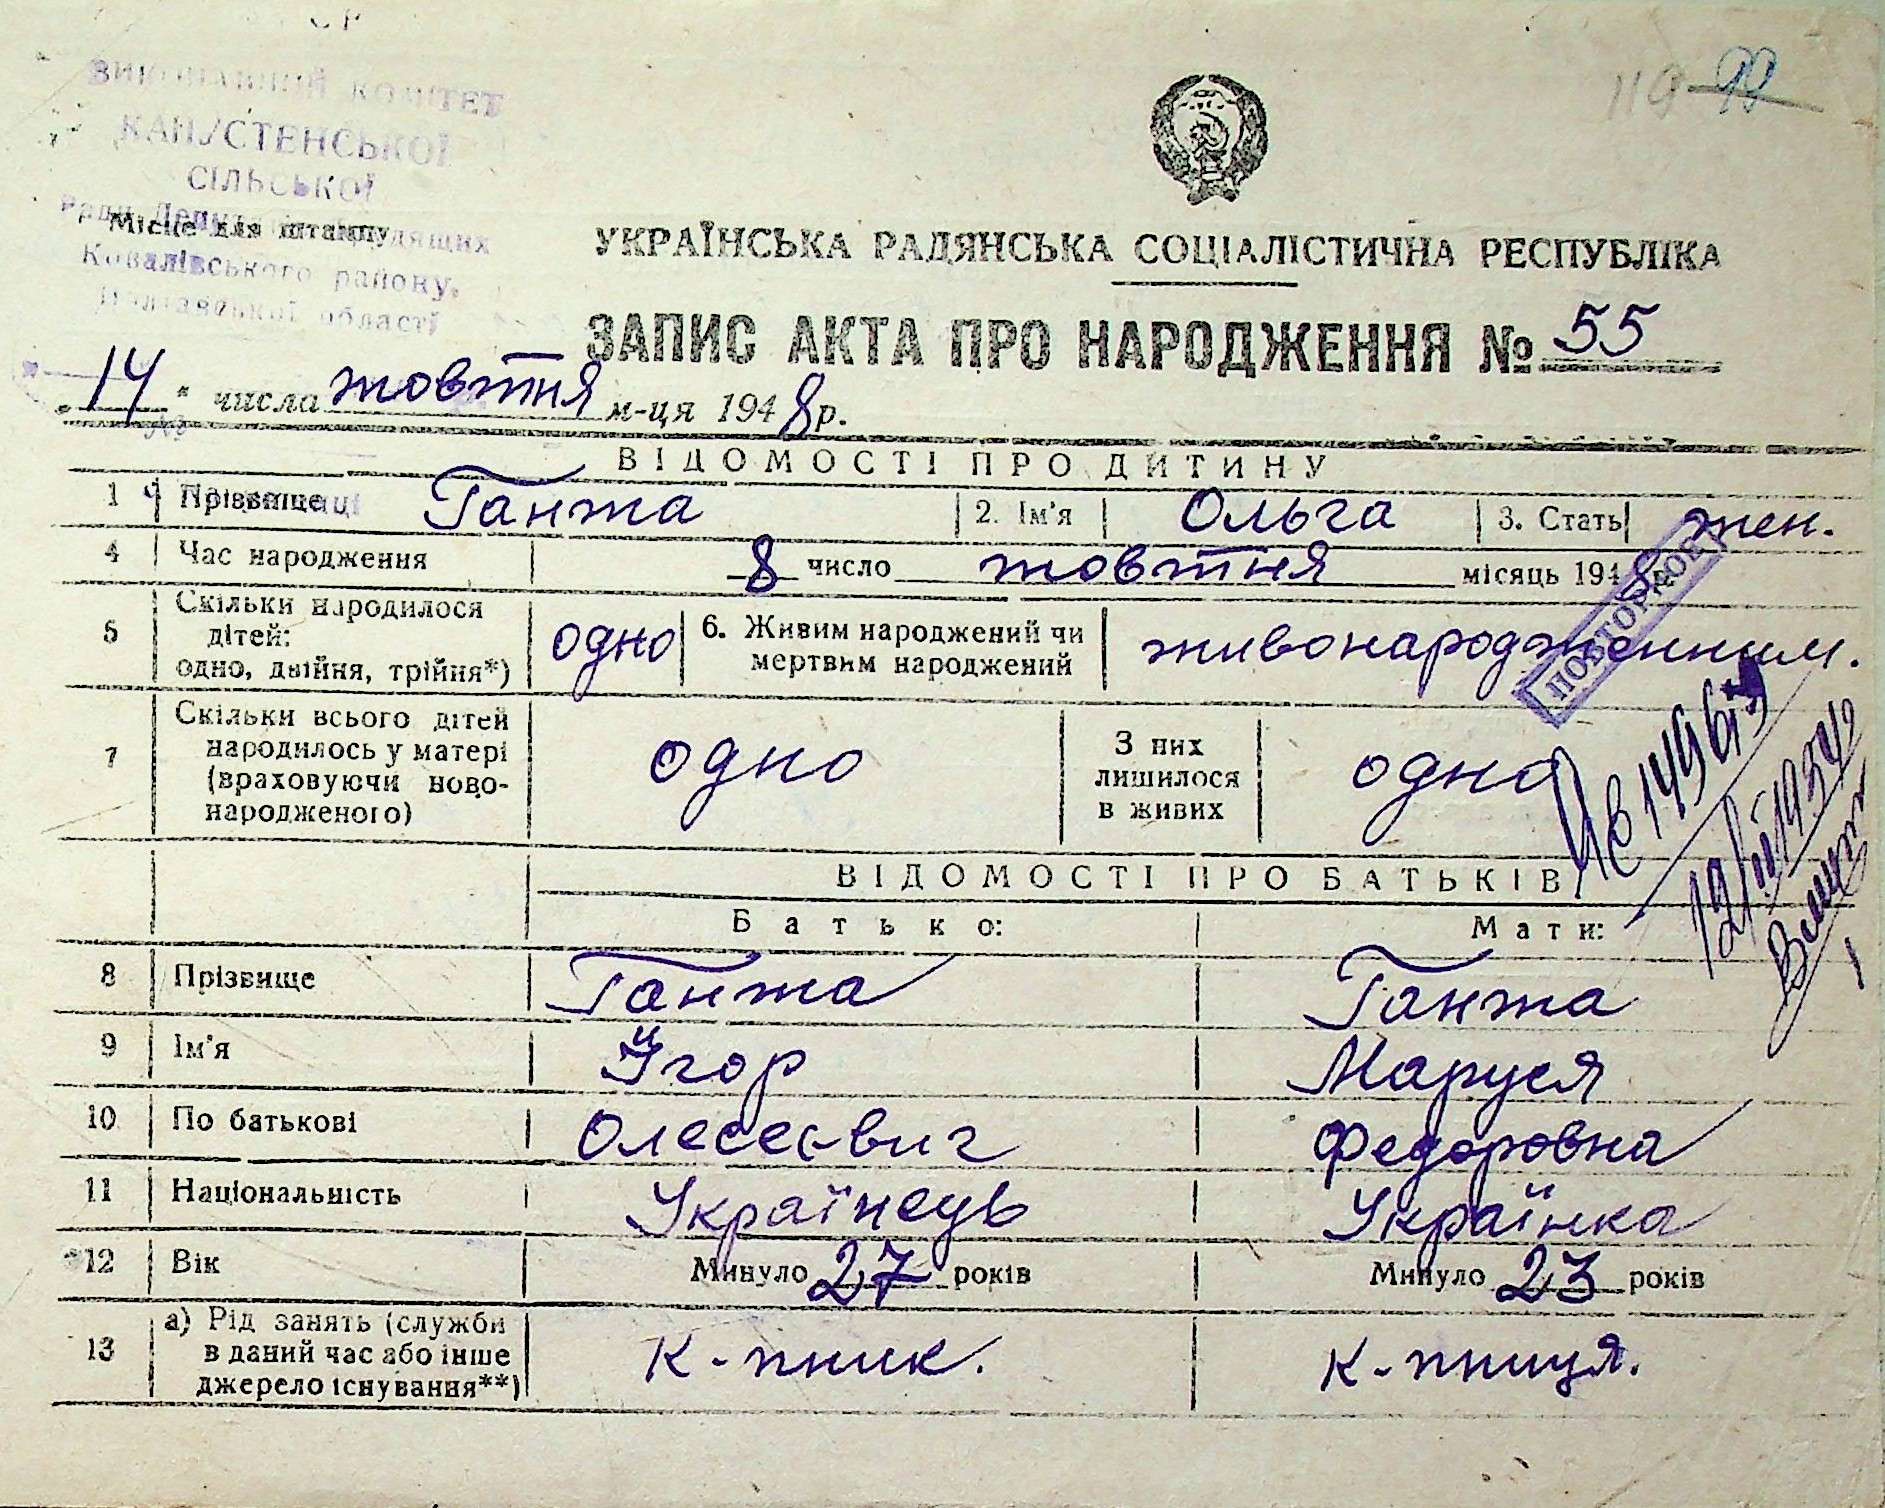 ВИКОНАВЧИЙ КОМІТЕТ
КАПУСТЕНСЬКОЇ
СІЛЬСЬКОЇ
Ради Депутатів трудящих
Ковалівського району,
Полтавської області
Місце для штампу
119 99
УКРАЇНСЬКА РАДЯНСЬКА СОЦІАЛІСТИЧНА РЕСПУБЛІКА
ЗАПИС АКТА ПРО НАРОДЖЕННЯ № 55
„14" числа жовтня м-ця 1948 р.
ВІДОМОСТІ ПРО ДИТИНУ
1 Прізвище Ганжа 2. Ім'я Ольга 3. Стать жен.
4 Час народження 8 число жовтня місяць 1948
ПОВТОРНОЕ
5 Скільки народилося дітей: одно, двійня, трійня*) одно 6. Живим народжений чи мертвим народжений живонародженним.
7 Скільки всього дітей народилось у матері (враховуючи новонародженого) одно З них лишилося в живих одно
12/III 1954
ВІДОМОСТІ ПРО БАТЬКІВ
Батько: Мати:
8 Прізвище Ганжа Ганжа
9 Ім'я Йгор Маруся
10 По батькові Олесеєвич Федоровна
11 Національність Українець Українка
12 Вік Минуло 27 років Минуло 23 років
13 а) Рід занять (служби в даний час або інше джерело існування**) к-пник. к-пниця.